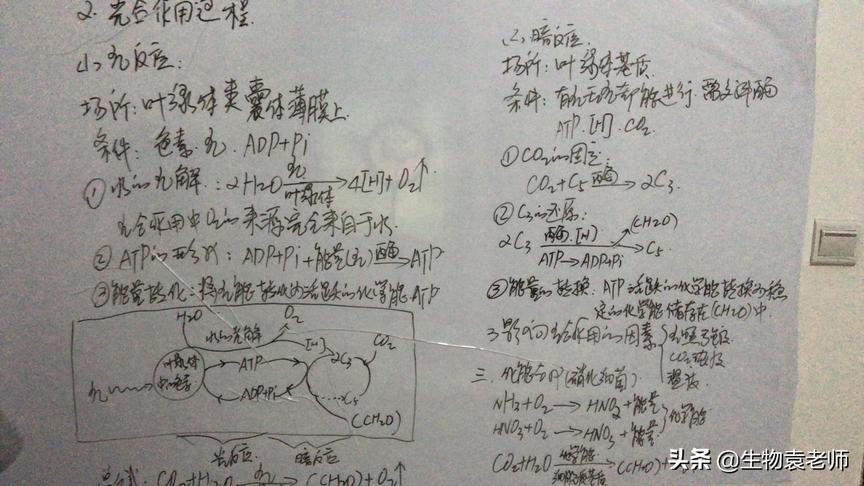 2. 光合作用过程.
(1) 光反应:
场所: 叶绿体类囊体薄膜上.
条件: 色素. 光. ADP+Pi
① 水的光解: 2H2O 光 叶绿体 → 4[H]+O2↑
光合作用中O2的来源完全来自于水.
② ATP的形成: ADP+Pi+能量(光) 酶 → ATP
③ 能量转化: 将光能转化为活跃的化学能. ATP
H2O 水的光解 O2
[H] 2C3 CO2
光 叶绿体中的色素 ATP
ADP+Pi C5
(CH2O)
光反应 暗反应
总式: CO2+H2O 光 → (CH2O)+O2↑
(2) 暗反应.
场所: 叶绿体基质.
条件: 有光无光都能进行. 需多种酶
ATP. [H]. CO2.
① CO2的固定:
CO2+C5 酶 → 2C3.
② C3的还原:
2C3 酶. [H] ATP→ADP+Pi (CH2O) C5
③ 能量的转换. ATP活跃的化学能转换为稳
定的化学能储存在(CH2O)中.
3. 影响光合作用的因素 光照强度
CO2浓度
温度.
三. 化能合成(硝化细菌).
NH3+O2 → HNO2+能量 化学能
HNO3+O2 → HNO3+能量
CO2+H2O 化学能 → (CH2O)+
头条 @生物袁老师